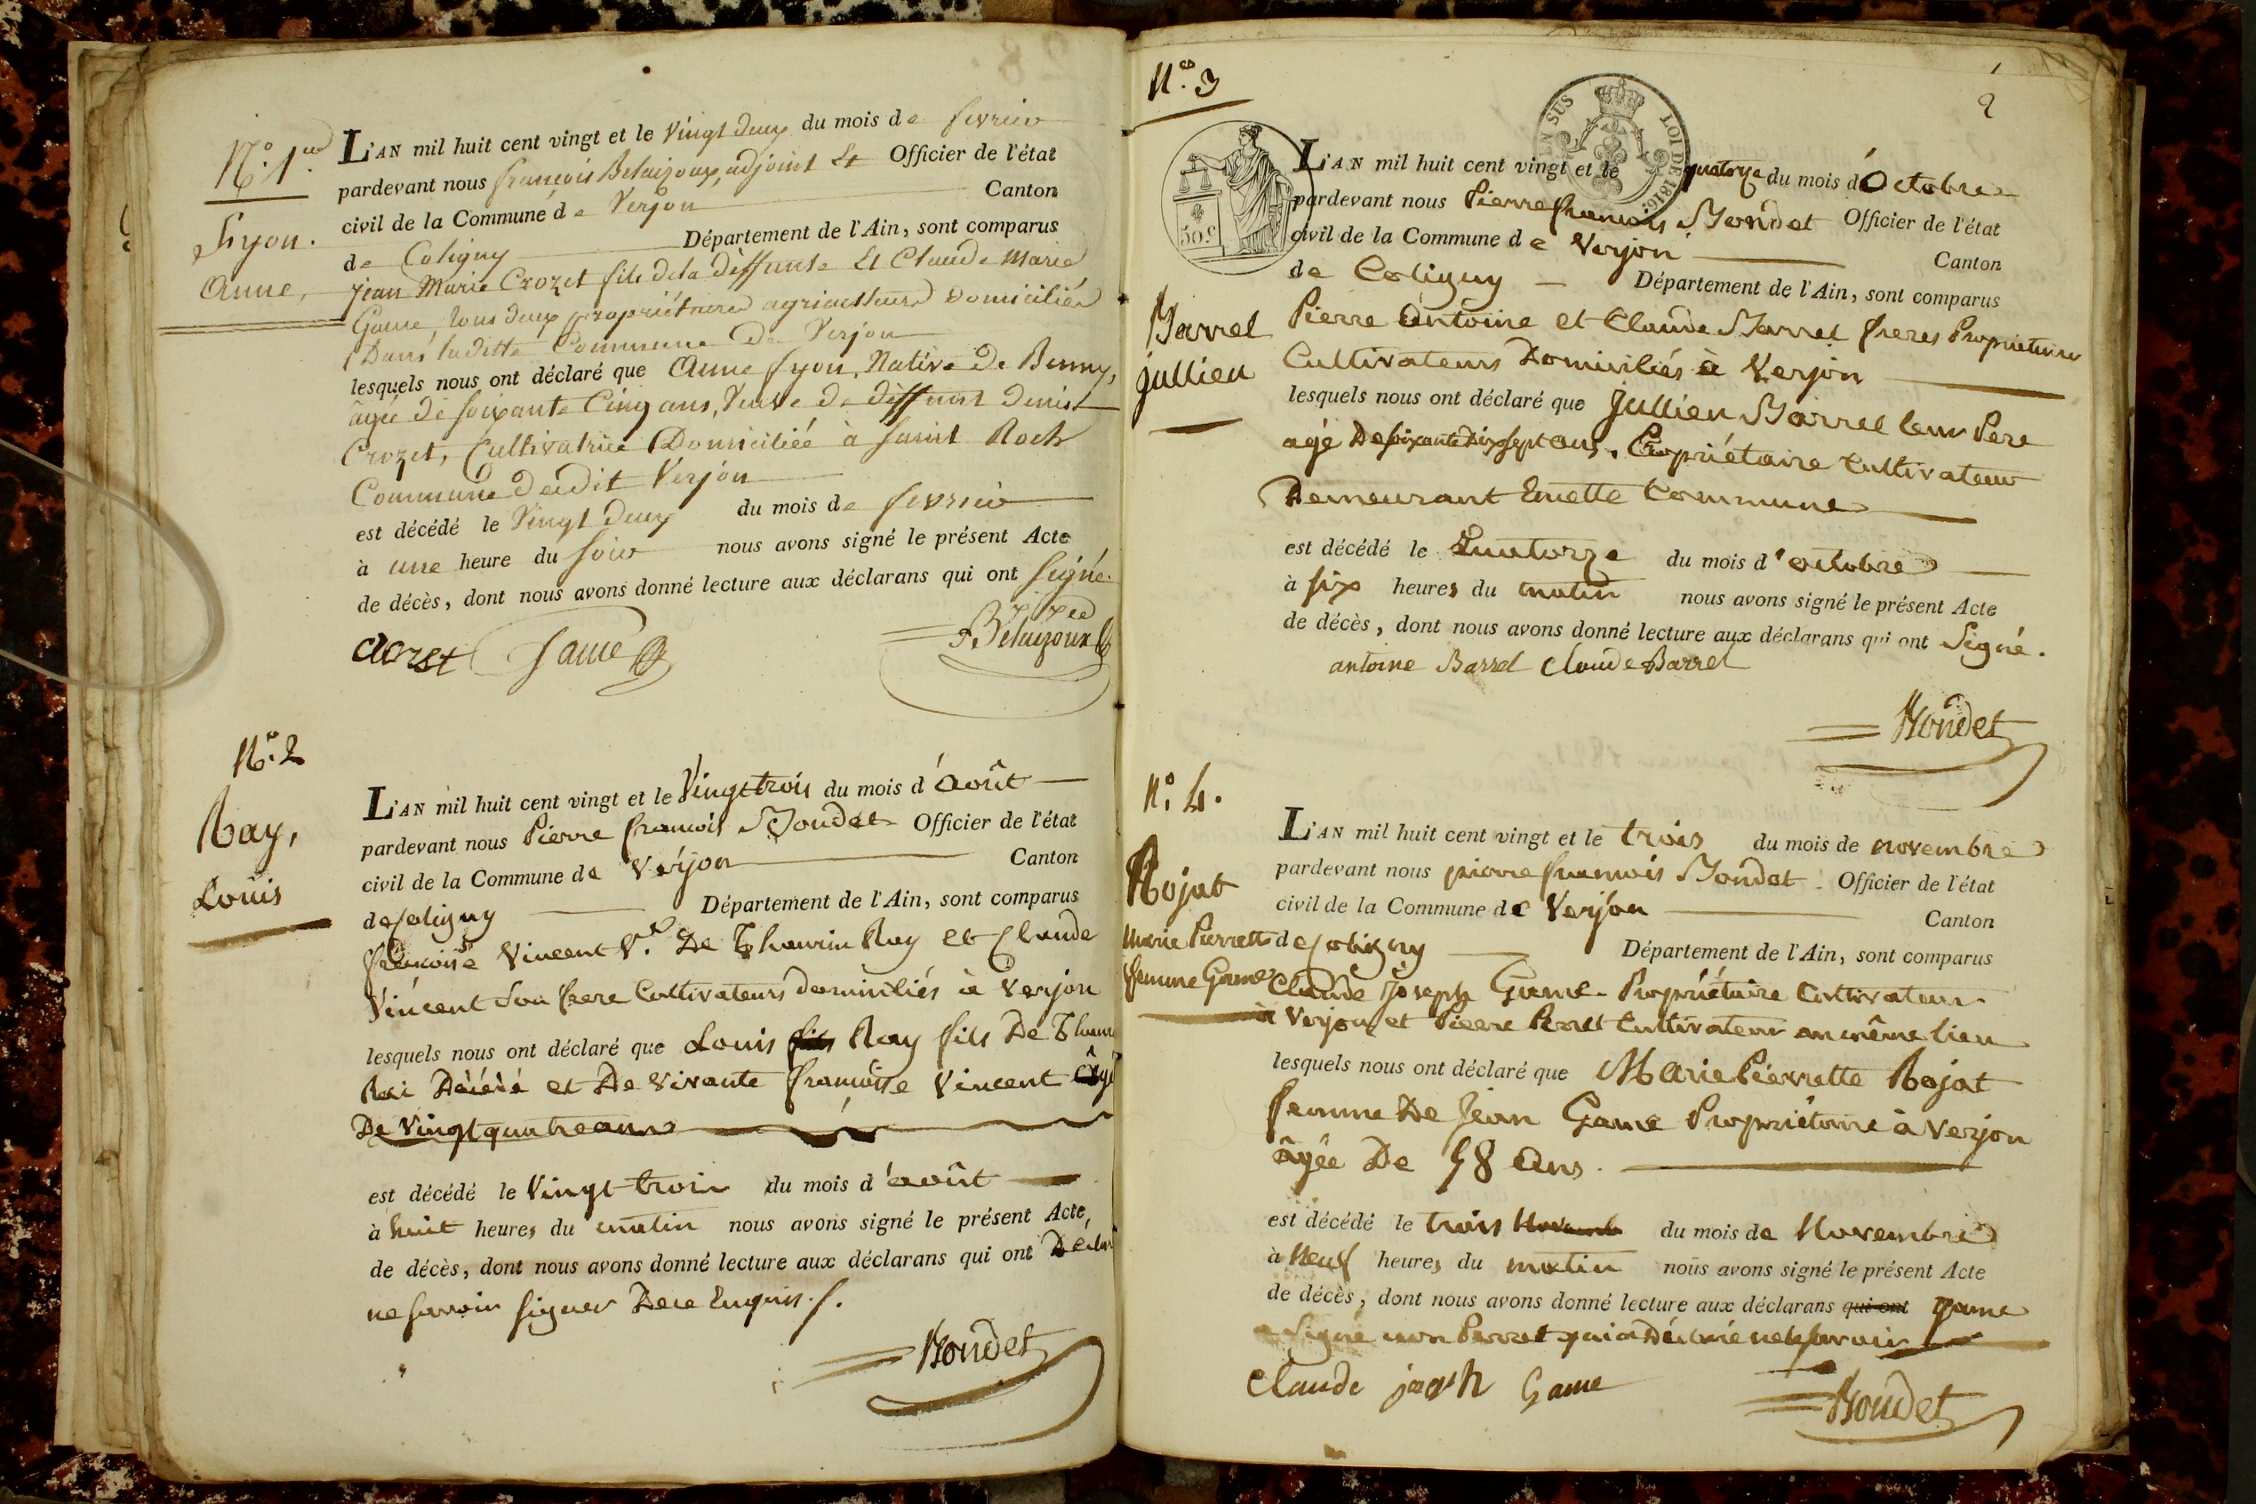 N.° 1.er
Lyon.
Anne,
L'AN mil huit cent vingt et le vingt deux du mois de fevrier
pardevant nous françois Beluizoux, adjoint et Officier de l'état
civil de la Commune de Verjon Canton
de Coligny Département de l'Ain, sont comparus
jean Marie Crozet fils de la deffunte et Claude Marie
Game, tous deux propriétaires agriculteurs domiciliés
Dans laditte Commune de Verjon
lesquels nous ont déclaré que Anne Lyon, Native de Benny,
âgée de soixante Cinq ans, Veuve de deffunt denis
Crozet, Cultivatrice Domiciliée à saint Roch
Commune dudit Verjon
est décédé le vingt deux du mois de fevrier
à une heure du soir nous avons signé le présent Acte
de décès, dont nous avons donné lecture aux déclarans qui ont signé.
Game
F. Beluizoux
N.° 2
Ray,
Louis
L'AN mil huit cent vingt et le Vingt trois du mois d'août
pardevant nous Pierre françois Hondet Officier de l'état
civil de la Commune de Verjon Canton
de Coligny Département de l'Ain, sont comparus
françoise Vincent V.e De Thaurin Ray et Claude
Vincent son frere Cultivateurs domiciliés à Verjon
lesquels nous ont déclaré que Louis fils Ray fils De
Rai Décédé et De vivante françoise Vincent âgé
De Vingt quatre ans
est décédé le vingt trois du mois d'août
à huit heures du matin nous avons signé le présent Acte,
de décès, dont nous avons donné lecture aux déclarans qui ont
ne savoir signer De ce Enquis.
Hondet
2
N.° 3
EN SUS
LOI DE 1816.
50 c
Barrel
jullien
L'AN mil huit cent vingt et le quatorze du mois d'Octobre
pardevant nous Pierre françois Hondet Officier de l'état
civil de la Commune de Verjon Canton
de Coligny Département de l'Ain, sont comparus
Pierre Antoine et Claude Barrel freres Propriétaires
Cultivateurs Domiciliés à Verjon
lesquels nous ont déclaré que Jullien Barrel leur Pere
agé De soixante Dix sept ans, Propriétaire Cultivateur
Demeurant Enette Commune
est décédé le Quatorze du mois d'octobre
à six heures du matin nous avons signé le présent Acte
de décès, dont nous avons donné lecture aux déclarans qui ont Signé.
antoine Barrel Claude Barrel
Hondet
N.° 4.
Rojat
Marie Pierrette
femme Game
L'AN mil huit cent vingt et le trois du mois de novembre
pardevant nous pierre françois Hondet Officier de l'état
civil de la Commune de Verjon Canton
de Coligny Département de l'Ain, sont comparus
Claude Joseph Game Propriétaire Cultivateur
à Verjon et Pierre Perret Cultivateur au même lieu
lesquels nous ont déclaré que Marie Pierrette Rojat
femme De Jean Game Propriétaire à Verjon
âgée De 58 Ans.
est décédé le trois Novemb du mois de Novembre
à Neuf heures du matin nous avons signé le présent Acte
de décès, dont nous avons donné lecture aux déclarans qui ont Game
a Signé non Perret qui a Déclaré ne le savoir
Claude joseph Game
Hondet